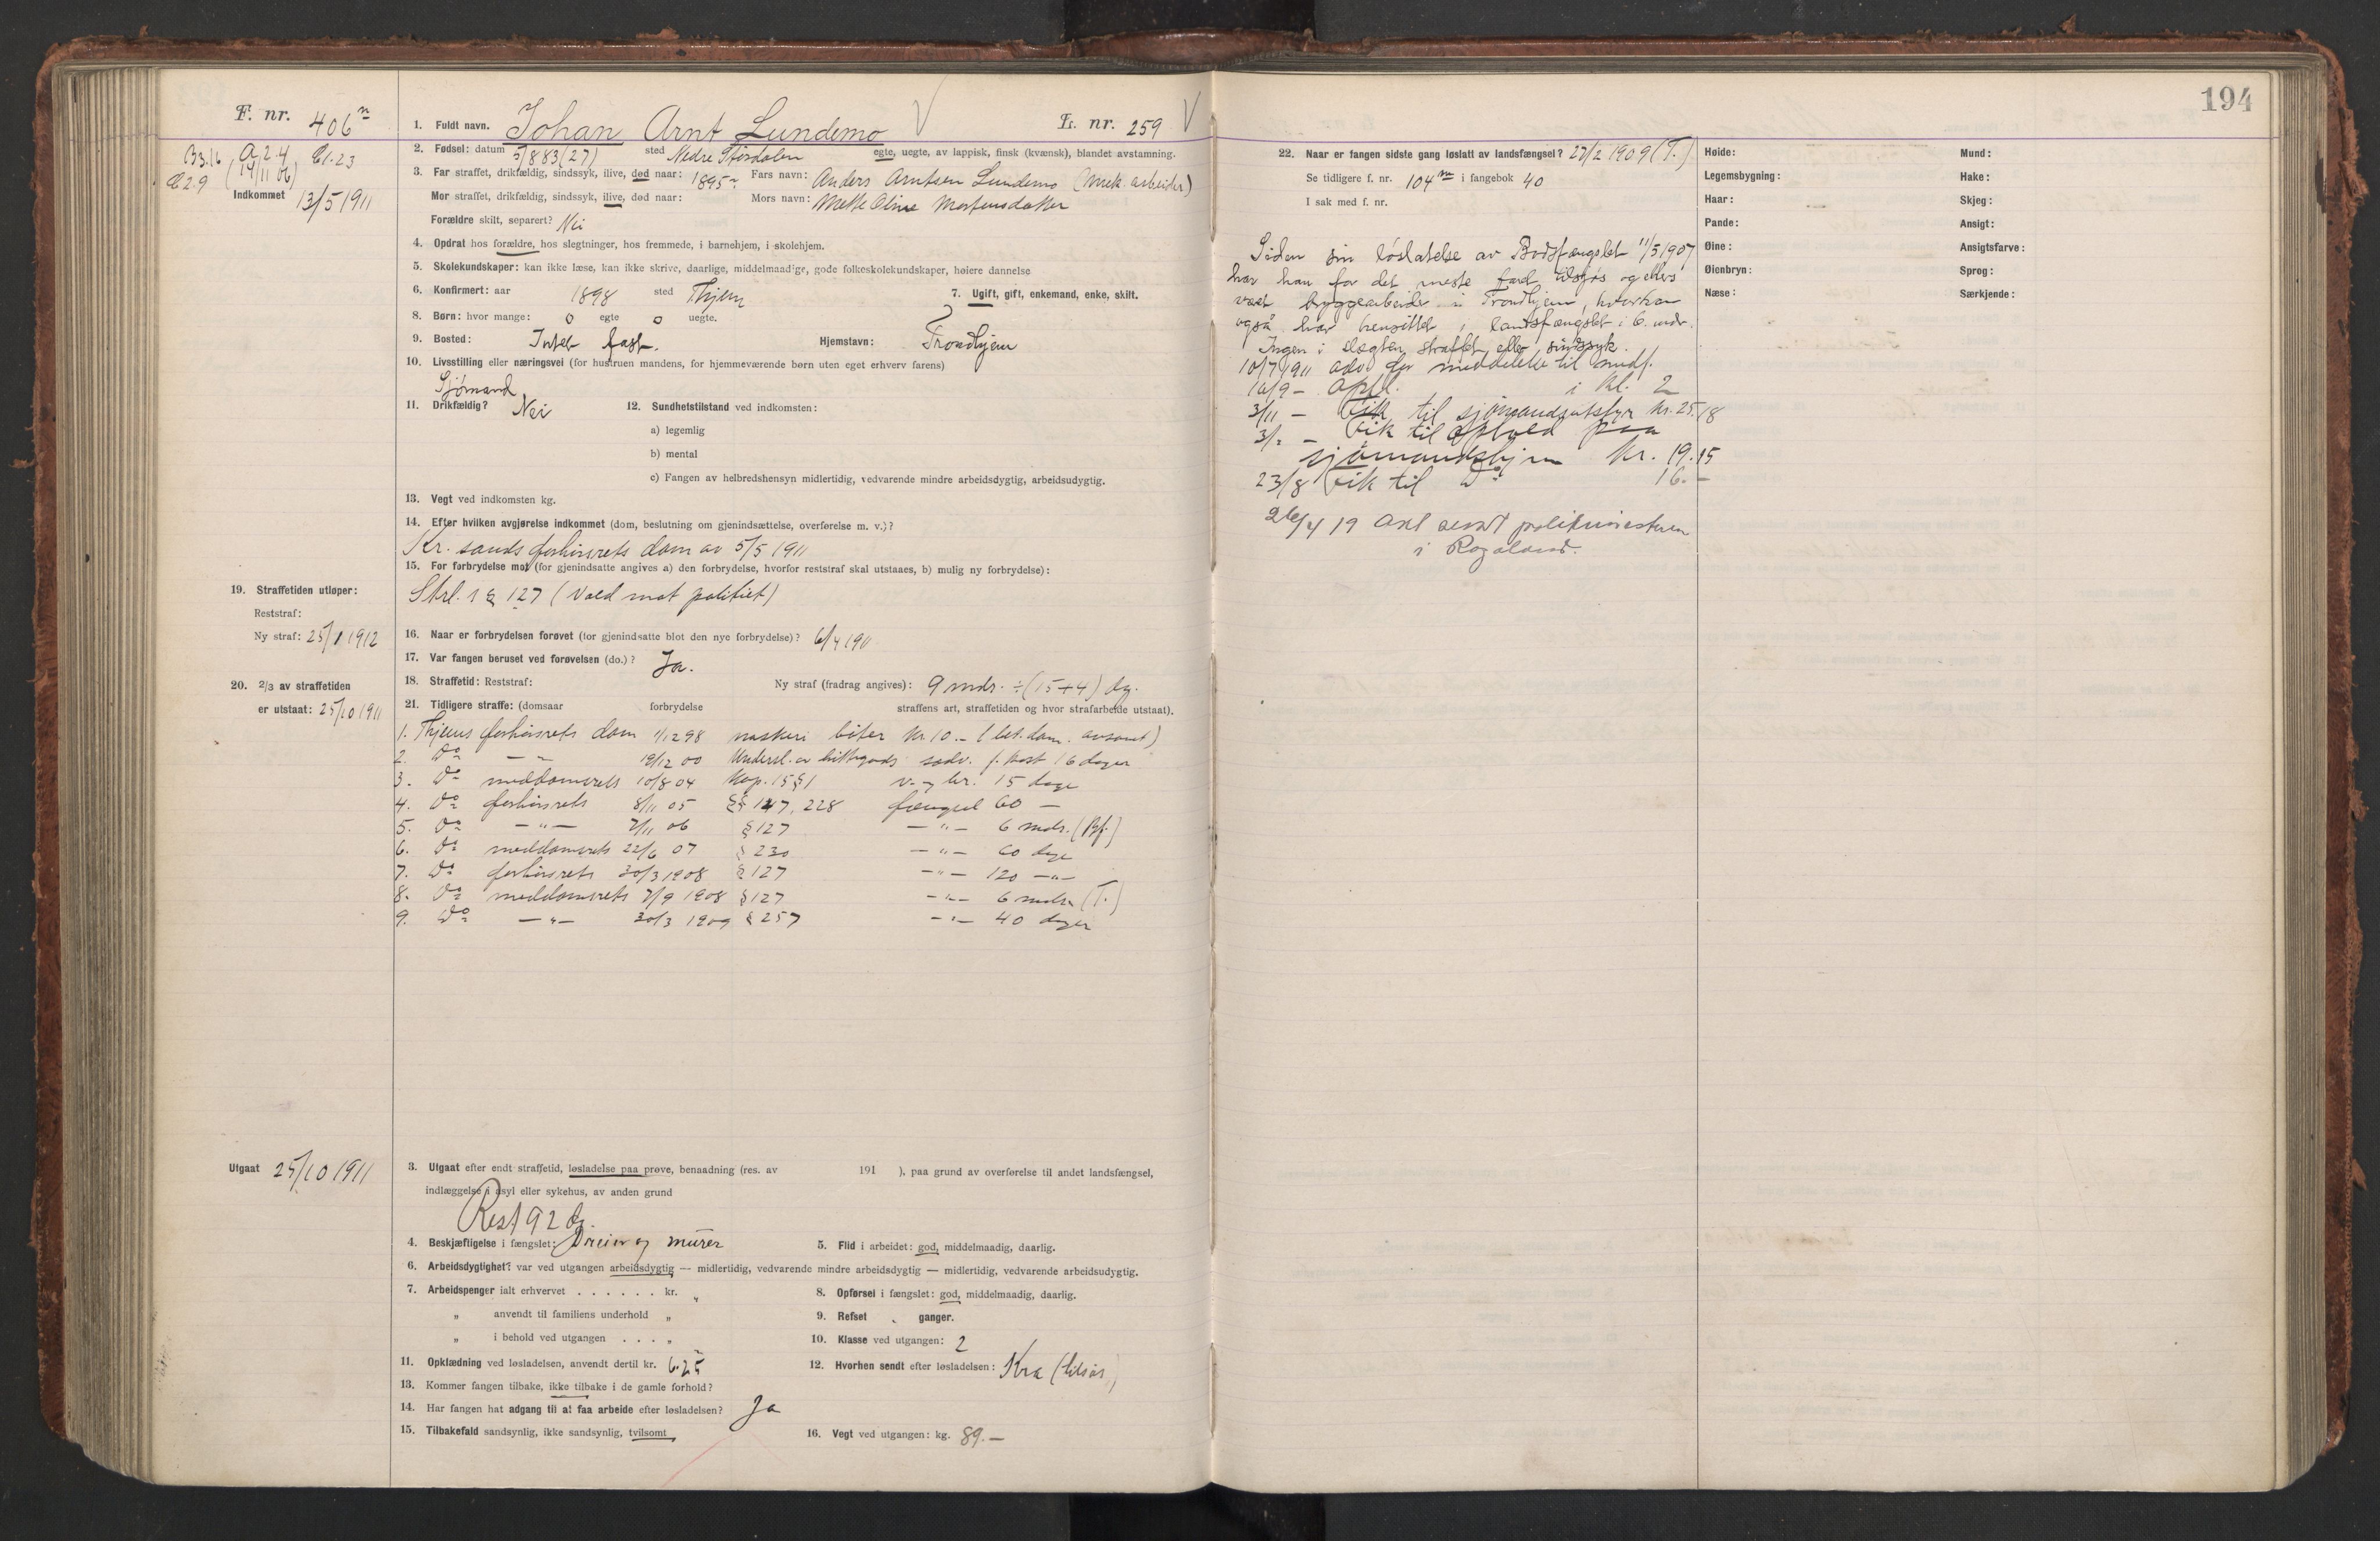 194
F. nr. 406
1. Fuldt navn. Johan Arnt Lundemo
L. nr. 259
B3.16 A 2.4 C1.23
(14/11 06)
2.9
Indkommet 13/5 1911
2. Fødsel: datum 5/8 83 (27) sted Nedre Stjørdalen egte, uegte, av lappisk, finsk (kvænsk), blandet avstamning.
3. Far straffet, drikfældig, sindssyk, ilive, død naar: 1895 Fars navn: Anders Arntsen Lundemo (mek. arbeider)
Mor straffet, drikfældig, sindssyk, ilive, død naar: Mors navn: Mette Oline Mortensdatter
Forældre skilt, separert? Nei
4. Opdrat hos forældre, hos slegtninger, hos fremmede, i barnehjem, i skolehjem.
5. Skolekundskaper: kan ikke læse, kan ikke skrive, daarlige, middelmaadige, gode folkeskolekundskaper, høiere dannelse
6. Konfirmert: aar 1898 sted Thjem 7. Ugift, gift, enkemand, enke, skilt.
8. Børn: hvor mange: 0 egte 0 uegte.
9. Bosted: Intet fast. Hjemstavn: Trondhjem
10. Livsstilling eller næringsvei (for hustruen mandens, for hjemmeværende børn uten eget erhverv farens)
Sjømand
11. Drikfældig? Nei 12. Sundhetstilstand ved indkomsten:
a) legemlig
b) mental
c) Fangen av helbredshensyn midlertidig, vedvarende mindre arbeidsdygtig, arbeidsudygtig.
13. Vegt ved indkomsten kg.
14. Efter hvilken avgjørelse indkommet (dom, beslutning om gjenindsættelse, overførelse m. v.)?
Kr. sands forhørsrets dom av 5/5 1911
15. For forbrydelse mot (for gjenindsatte angives a) den forbrydelse, hvorfor reststraf skal utstaaes, b) mulig ny forbrydelse):
Strl. § 127 (Vold mot politiet)
19. Straffetiden utløper:
Reststraf:
Ny straf: 25/1 1912
16. Naar er forbrydelsen forøvet (for gjenindsatte blot den nye forbrydelse)? 6/4 1911
17. Var fangen beruset ved forøvelsen (do.)? Ja.
20. 2/3 av straffetiden
er utstaat: 25/10 1911
18. Straffetid: Reststraf: Ny straf (fradrag angives): 9 mdr. ÷ (15+4) dg.
21. Tidligere straffe: (domsaar forbrydelse straffens art, straffetiden og hvor strafarbeide utstaat).
1. Thjems forhørsrets dom 1/12 98 naskeri bøter kr 10.- (bet. dom. avsonet)
2. Do — " — 19/12 00 Undersl. av hittegods sedv. f. kost 16 dager
3. Do meddomsrets 10/8 04 Kap. 15 § 1 v. - br. 15 dage
4. Do forhørsrets 8/11 05 §§ 147, 228 fængsel 60 —
5. Do — " — 7/11 06 § 127 — " — 6 mdr. (Bf.)
6. Do meddomsrets 22/6 07 § 230 — " — 60 dage
7. Do forhørsrets 30/3 1908 § 127 — " — 120 — " —
8. Do meddomsrets 7/9 1908 § 127 — " — 6 mdr. (T.)
9. Do — " — 30/3 1909 § 257 — " — 40 dager
Utgaat 25/10 1911
3. Utgaat efter endt straffetid, løsladelse paa prøve, benaadning (res. av 191 ), paa grund av overførelse til andet landsfængsel,
indlæggelse i asyl eller sykehus, av anden grund
Rest 92 dg.
4. Beskjæftigelse i fængslet: Dreier og murer 5. Flid i arbeidet: god, middelmaadig, daarlig.
6. Arbeidsdygtighet: var ved utgangen arbeidsdygtig — midlertidig, vedvarende mindre arbeidsdygtig — midlertidig, vedvarende arbeidsudygtig.
7. Arbeidspenger ialt erhvervet . . . . . . kr. „ 8. Opførsel i fængslet: god, middelmaadig, daarlig.
„ anvendt til familiens underhold „ 9. Refset ganger.
„ i behold ved utgangen . . . „ 10. Klasse ved utgangen: 2
11. Opklædning ved løsladelsen, anvendt dertil kr. 6.25 12. Hvorhen sendt efter løsladelsen: Kra (tilsjøs)
13. Kommer fangen tilbake, ikke tilbake i de gamle forhold?
14. Har fangen hat adgang til at faa arbeide efter løsladelsen? Ja
15. Tilbakefald sandsynlig, ikke sandsynlig, tvilsomt 16. Vegt ved utgangen: kg. 89.—
22. Naar er fangen sidste gang løslatt av landsfængsel? 27/2 1909 (T.)
Se tidligere f. nr. 104 i fangebok 40
I sak med f. nr.
Siden sin løslatelse av Bodsfængslet 11/5 1907
har han for det meste faret tilsjøs og ellers
vært bryggearbeider i Trondhjem, hvor han
også har hensittet i landsfængslet i 6 mdr.
Ingen i slægten straffet eller sindssyk.
10/7 1911 adv. for meddelelse til medf.
10/9 – Opfl. i kl. 2
3/11 – Fik til sjømandsutstyr kr. 25.18
3/2 – Fik til ophold paa
sjømandshjem kr. 19.15
23/8 Fik til Do 16.–
26/4 19 Axl sendt politimesteren
i Rogaland.
Høide: Mund:
Legemsbygning: Hake:
Haar: Skjeg:
Pande: Ansigt:
Øine: Ansigtsfarve:
Øienbryn: Sprog:
Næse: Særkjende: